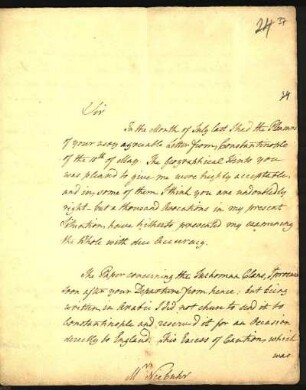 24 37
34
Sir
In the Month of July last I had the Pleasure
of your very agreable Letter from Constantinople
of the 10th of May. The Geographical Hints you
was pleased to give me were highly acceptable,
and in some of them I think you are undoubtedly
right. but a thousand Avocations in my present
Situation, have hitherto prevented my examining
the Whole with due Accuracy.
The Paper concerning the Turkoman Clans, I procured
soon after your Departure from hence, but being
written in Arabic I did not chuse to send it to
Constantinople and reserved it for an Occasion
directly to England. This Excess of Caution, which
was
Mr. Niebuhr